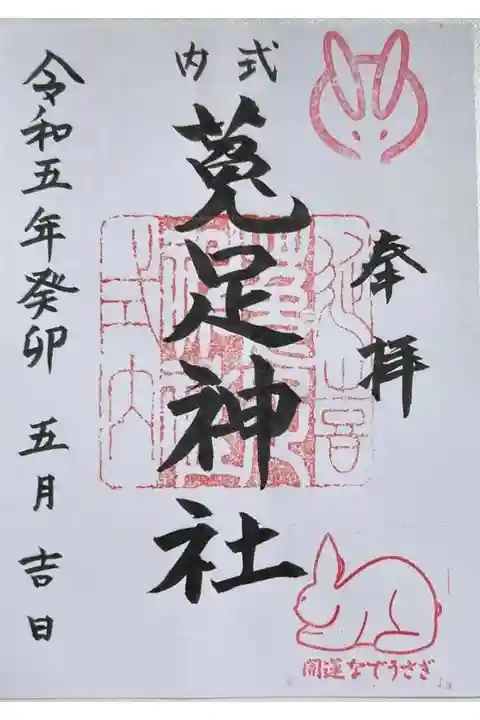 奉拝
式内
菟足神社
令和五年癸卯 五月吉日
延喜
式内
開運なでうさぎ